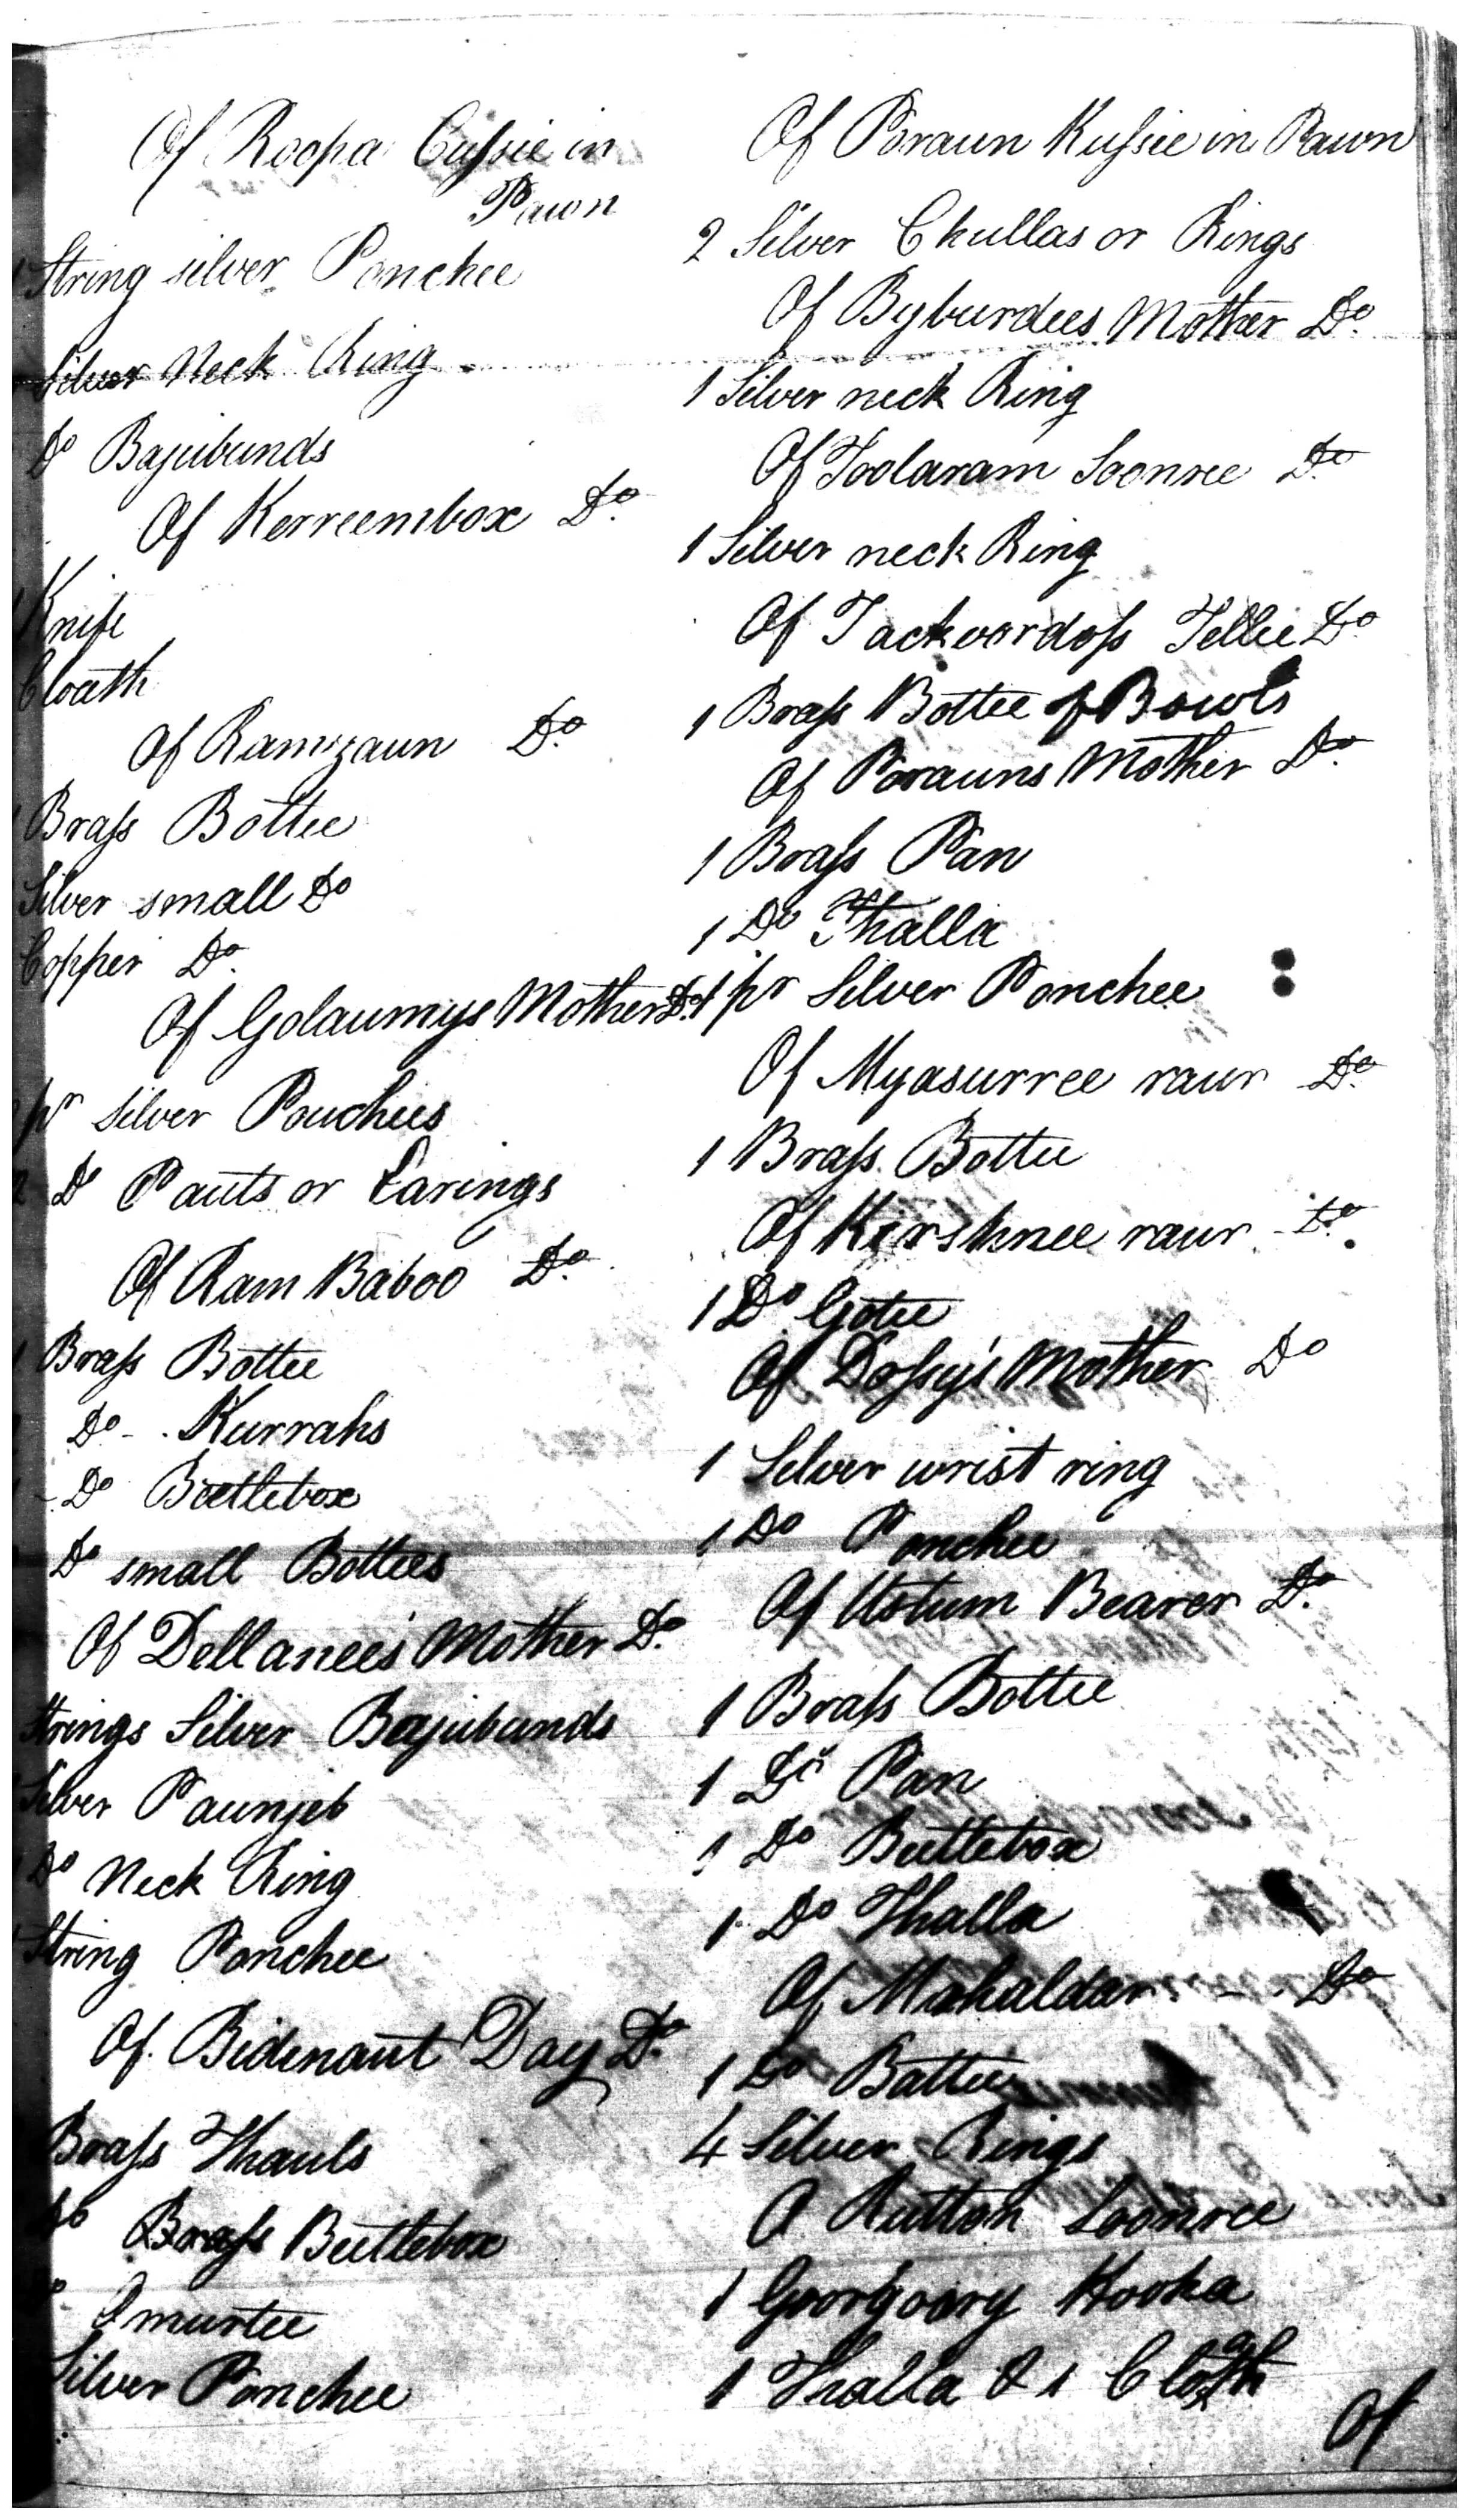 Of Roopa Cussie in
Pawn
1 String silver Ponchee
Silver Neck Ring
Do Bajubunds
Of Kerreembox Do
1 Knife
Cloath
Of Ramzaun Do
1 Brass Bottee
Silver small Do
Copper Do
Of Golaumys Mother Do
pr silver Pouchees
2 Do Pauts or Earings
Of Ram Baboo Do
1 Brass Bottee
Do Kurrahs
Do Beetlebox
Do small Bottees
Of Dellanee's Mother Do
Strings Silver Bajubands
Silver Paunjeb
Do Neck Ring
String Ponchee
Of Bidenaut Day Do
Brass Thauls
Do Brass Beetlebox
Do Imurtee
Silver Ponchee
Of Poraun Kussie in Pawn
2 Silver Chullas or Rings
Of Byburdees Mother Do
1 Silver neck Ring
Of Toolaram Soonree Do
1 Silver neck Ring
Of Tackoordoss Tellee Do
1 Brass Bottee & Bowls
Of Porauns Mother Do
1 Brass Pan
1 Do Thalla
1 pr Silver Ponchee
Of Myasurree raur Do
1 Brass Bottee
Of Kirshnee raur Do
1 Do Gotee
Of Dossy's Mother Do
1 Silver wrist ring
1 Do Ponchee
Of Ustum Bearer Do
1 Brass Bottee
1 Do Pan
1 Do Beetlebox
1 Do Thalla
Of Mahaldar Do
1 Do Battee
4 Silver Rings
O Rutton Soonree
1 Goorgoory Hooka
1 Thalla & 1 Cloath
Of